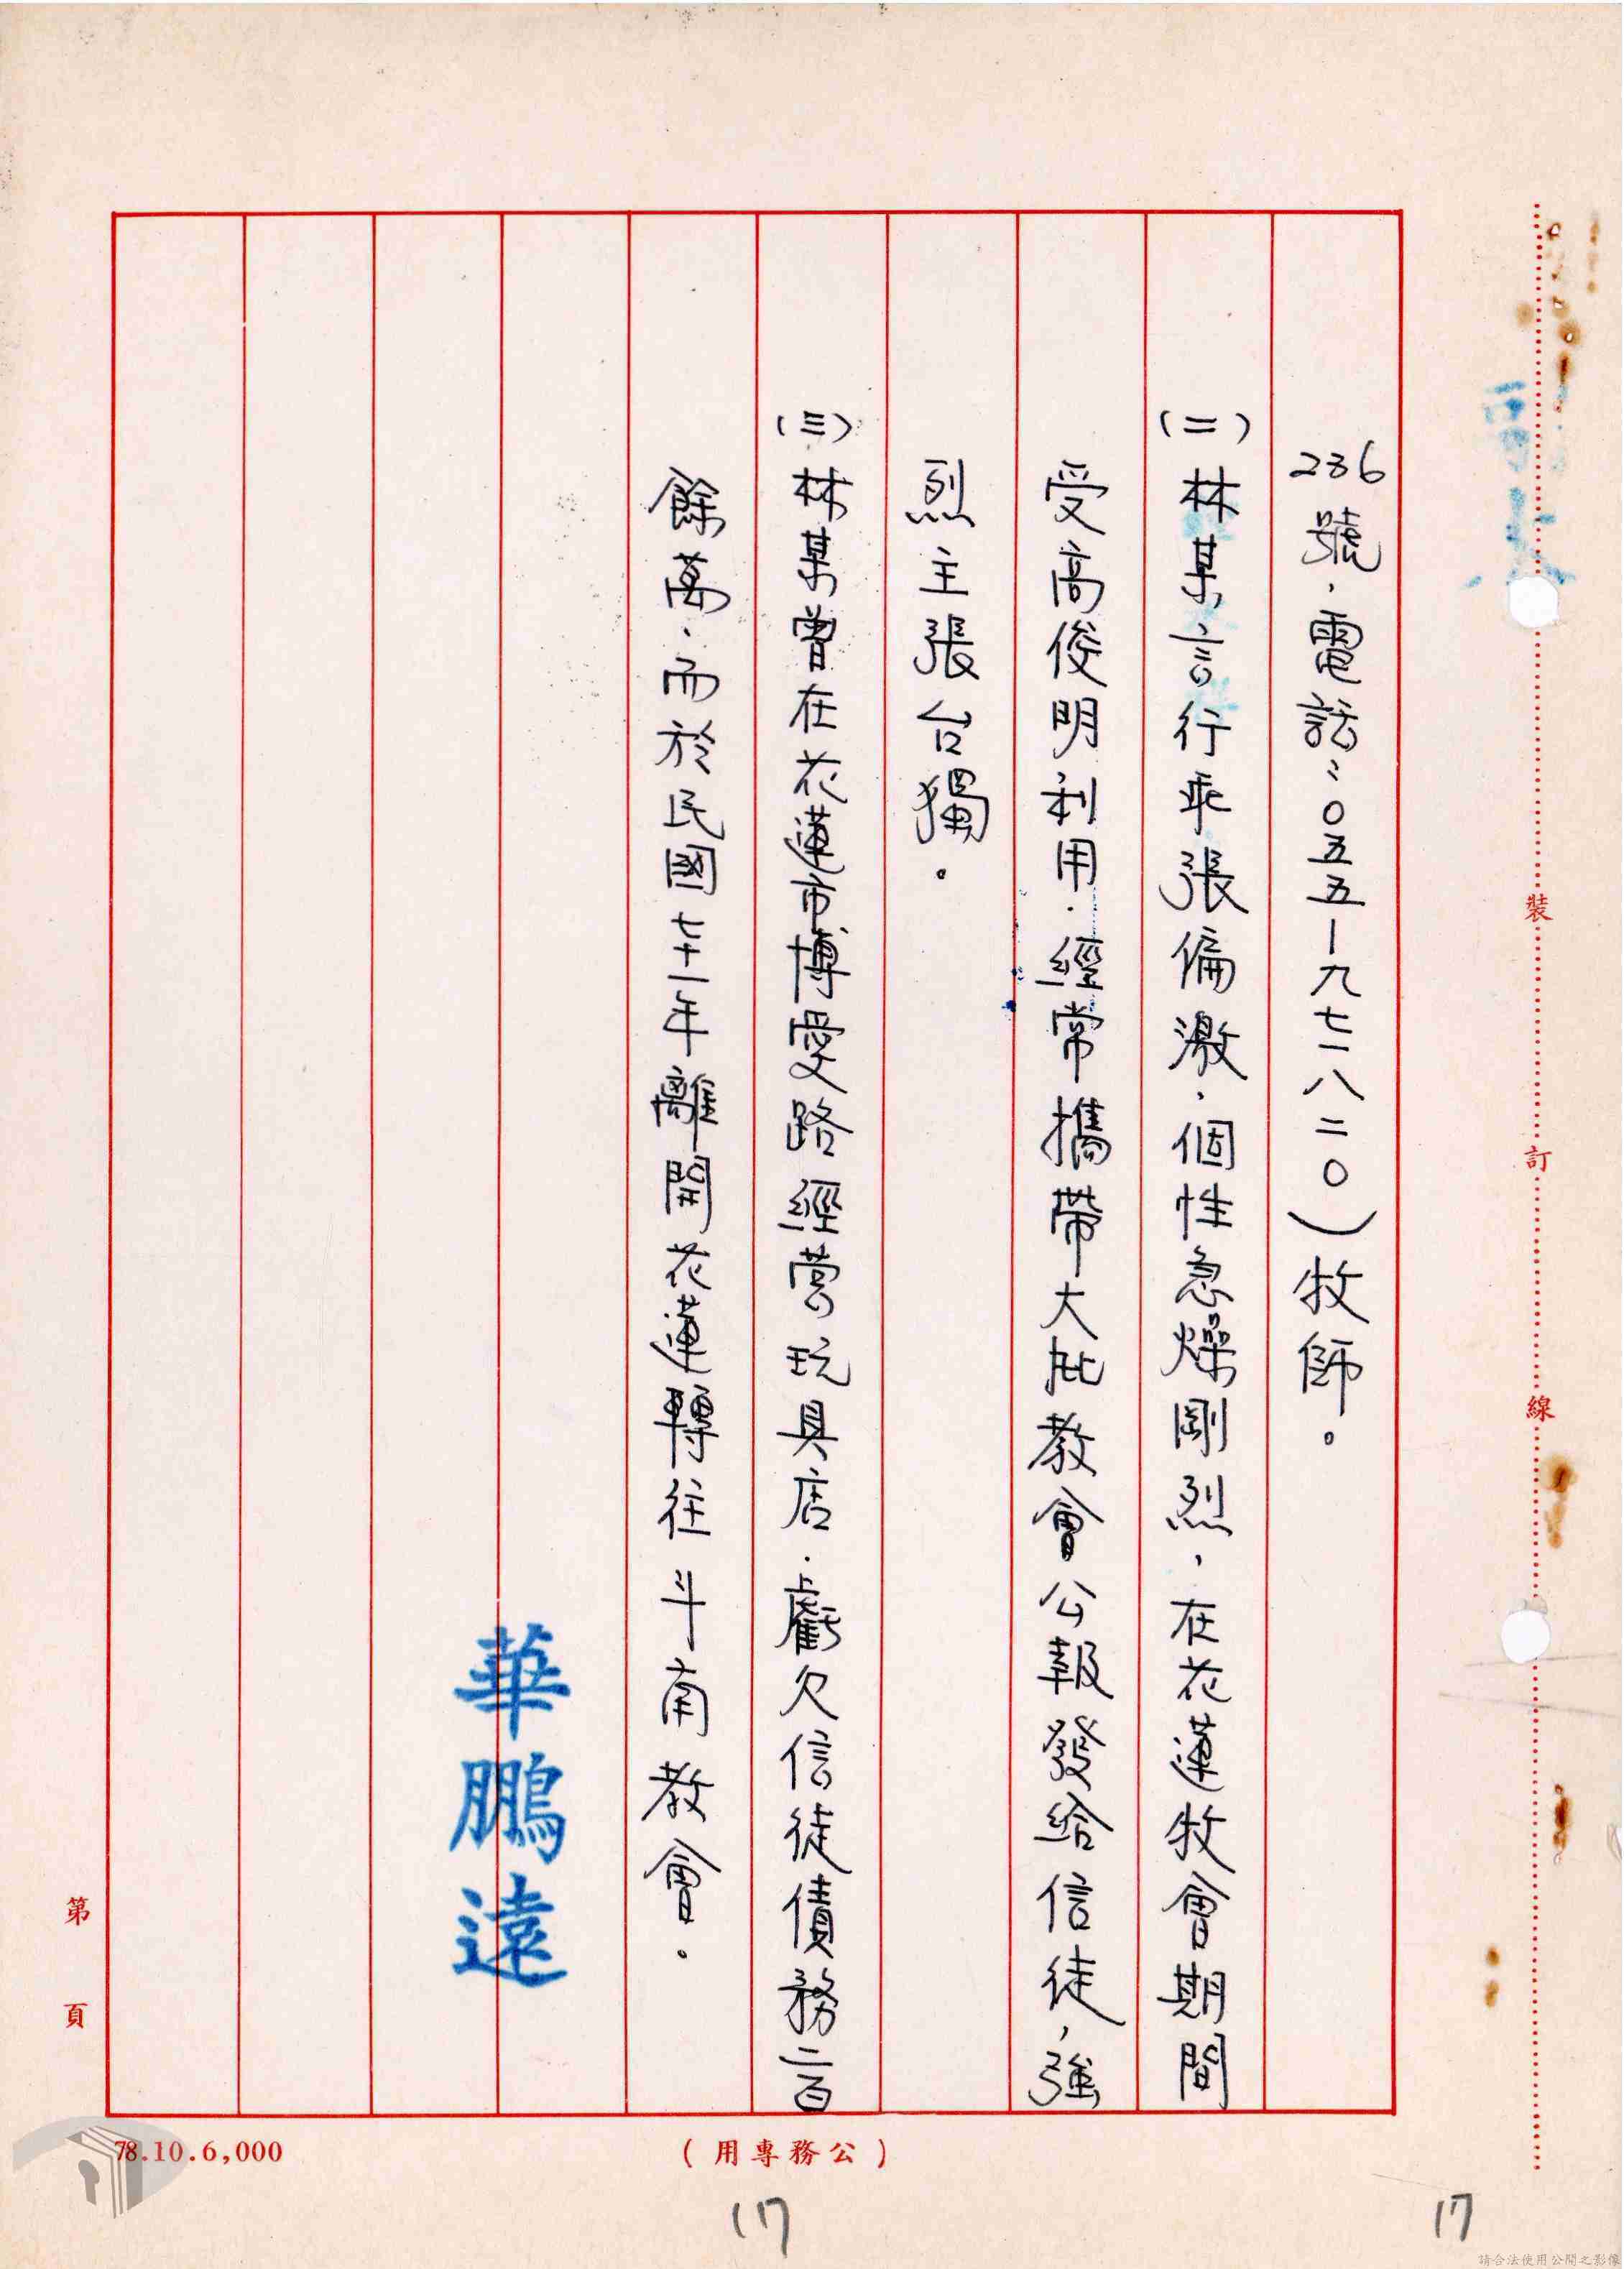 236號，電話：〇五五－九七一八二〇）牧師。
(二)林某言行乖張偏激，個性急燥剛烈，在花蓮牧會期間
受高俊明利用，經常攜帶大批教會公報發給信徒，強
烈主張台獨。
(三)林某曾在花蓮市博愛路經營玩具店，虧欠信徒債務二百
餘萬，而於民國七十一年離開花蓮轉往斗南教會。
華鵬遠
裝
訂
線
第
頁
78.10.6,000
(用專務公)
17
17
請合法使用公開之影像